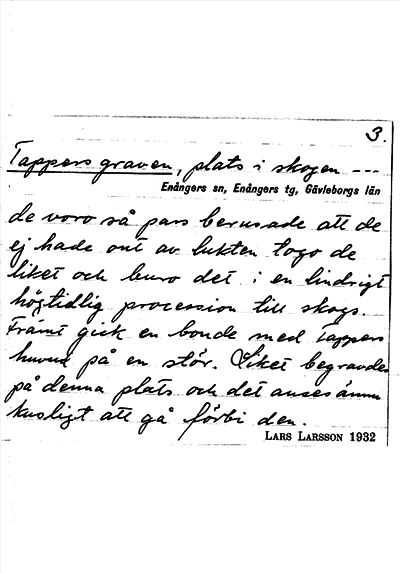 3.
Tappers graven, plats i skogen ---
Enångers sn, Enångers tg, Gävleborgs län
de voro så pass berusade att de
ej hade ont av lukten togo de
liket och buro det i en lindrigt
högtidlig procession till skogs.
Främt gick en bonde med Tappers
huvud på en stör. Liket begravdes
på denna plats och det anses ännu
kusligt att gå förbi den.
LARS LARSSON 1932